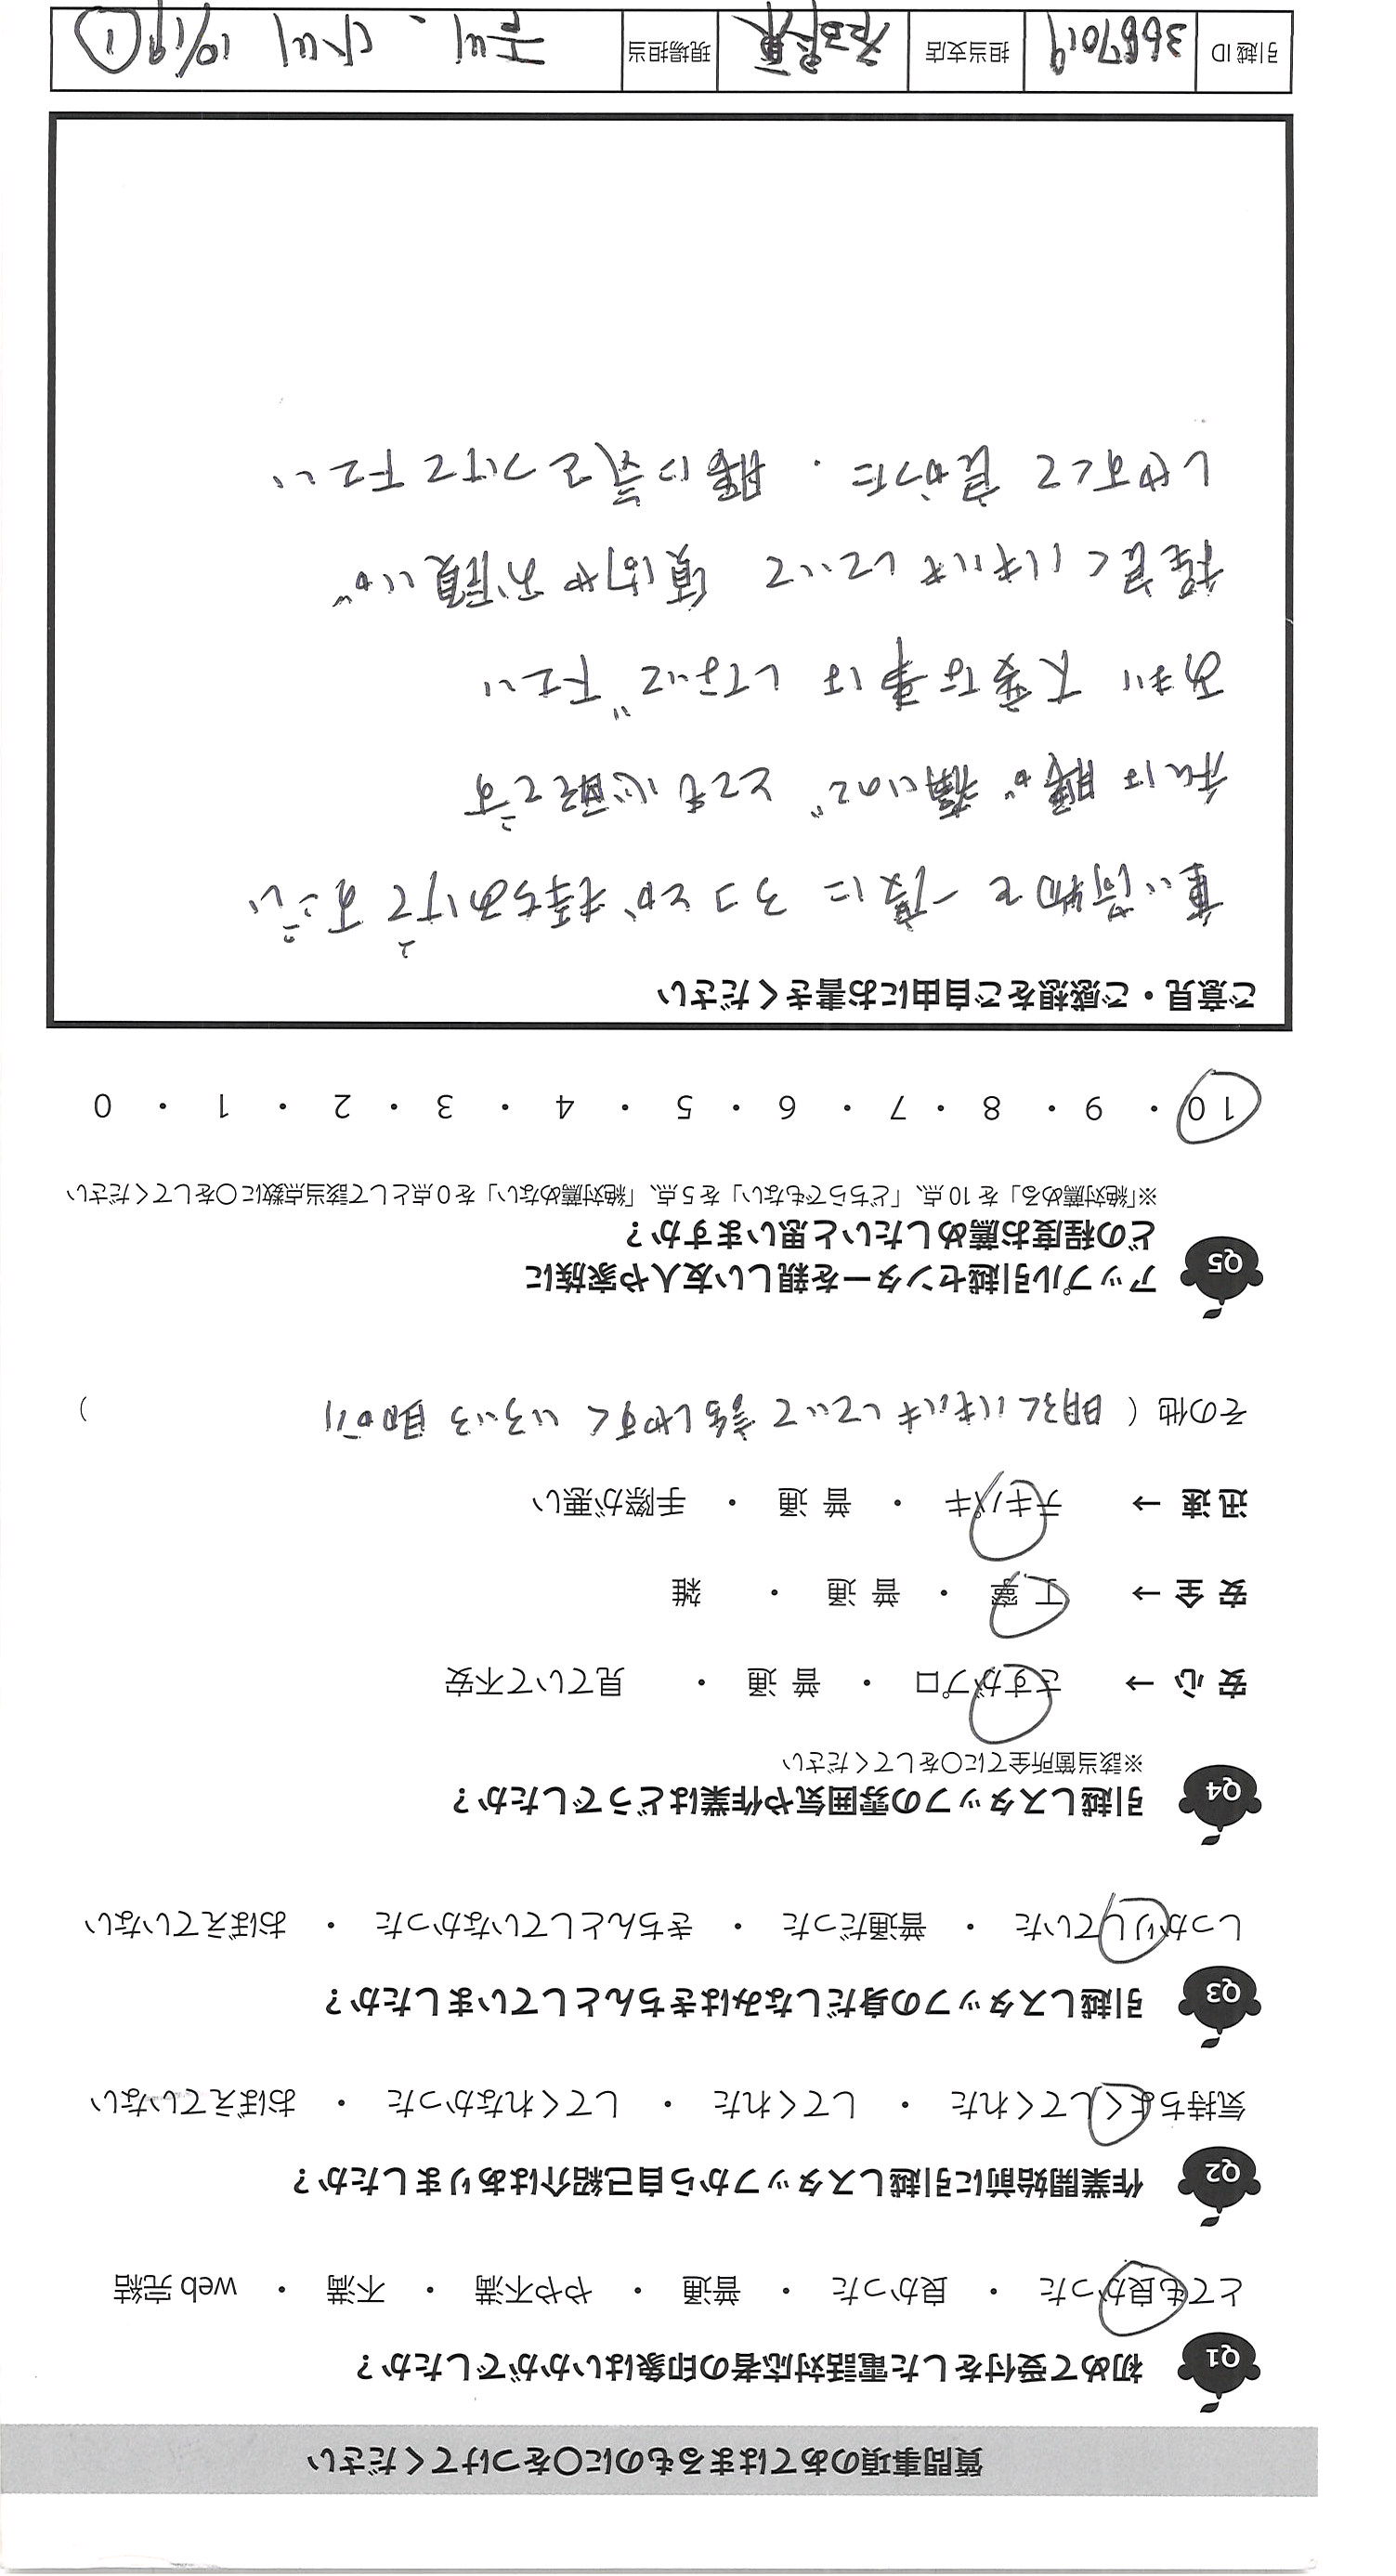 質問事項のあてはまるものに○をつけてください
Q1 初めて受付をした電話対応者の印象はいかがでしたか？
とても良かった ・ 良かった ・ 普通 ・ やや不満 ・ 不満 ・ web 完結
Q2 作業開始前に引越しスタッフから自己紹介はありましたか？
気持ちよくしてくれた ・ してくれた ・ してくれなかった ・ おぼえていない
Q3 引越しスタッフの身だしなみはきちんとしていましたか？
しっかりしていた ・ 普通だった ・ きちんとしていなかった ・ おぼえていない
Q4 引越しスタッフの雰囲気や作業はどうでしたか？
※該当箇所全てに○をしてください
安 心 → さすがプロ ・ 普 通 ・ 見ていて不安
安 全 → 丁 寧 ・ 普 通 ・ 雑
迅 速 → テキパキ ・ 普 通 ・ 手際が悪い
その他（ 明るくハキハキしていて 話しやすく いろいろ 助かり ）
Q5 アップル引越センターを親しい友人や家族に
どの程度お薦めしたいと思いますか？
※「絶対薦める」を 10 点、「どちらでもない」を 5 点、「絶対薦めない」を 0 点として該当点数に○をしてください
10 ・ 9 ・ 8 ・ 7 ・ 6 ・ 5 ・ 4 ・ 3 ・ 2 ・ 1 ・ 0
ご意見・ご感想をご自由にお書きください
重い荷物を 一度に 3コとか 持ちあげて すごい
私は 腰が 痛いので とても 心配です
あまり 大変な事は しないで 下さい
程良く ハキハキ していて 質問や お願いが
しやすくて 良かった . 腰に気をつけて下さい
引越 ID 3667019 担当支店 現場担当 10/19 ①